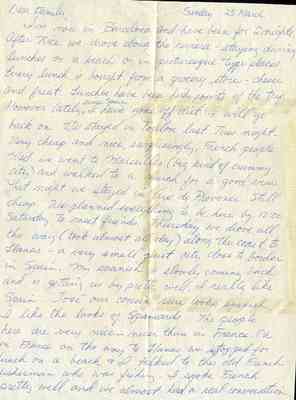 Dear Family, Sunday 25 March
I'm now in Barcelona and have been for 2 nights.
After Nice we drove along the riviera - staying during
lunches on a beach or in picturesque type places
Every lunch is bought from a grocery store - cheese
and fruit. Lunches have been high points of the trip.
However lately, I have gone off diet. I will go
back on. We stayed in Toulon last Tues night.
Very cheap and nice, surprisingly, French people.
Wed we went to Marseilles (big kind of crummy
city) and walked to a church for a good view.
That night we stayed in Aix de Provence. Still
cheap. We planned everything to be here by noon
Saturday to meet friends. Thursday we drove all
the way (took almost all day) along the coast to
Llanas - a very small quiet city close to border
in Spain. My spanish is slowly coming back
and is getting us by pretty well. I really like
Spain. Jose our cousin sure looks spanish.
I like the looks of Spaniards. The people
here are very much nicer than in France. But
in France on the way to Llanas we stopped for
lunch on a beach & I talked to this old French
fisherman who was fishing. I spoke French
pretty well and we almost had a real conversation